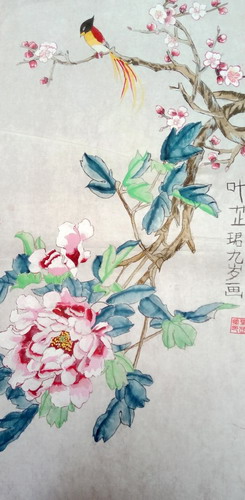 叶芷珺九岁画